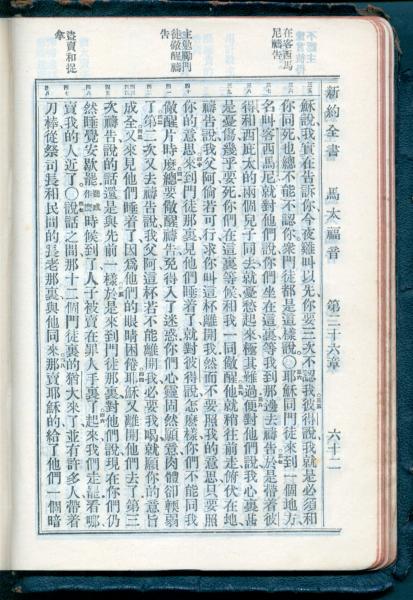 新約全書　馬太福音　第二十六章　六十二
在客西馬
尼禱告
主勉勵門
徒儆醒禱
告
賣和從
穌說、我實在告訴你、今夜雞叫以先、你要三次不認我、彼得說、我就是必須和
你同死、也總不能不認你、衆門徒都是這樣說、○耶穌同門徒來到一個地方、
名叫客西馬尼、就對他們說、你們坐在這裏、等我到那邊去禱告、於是帶着彼
得、和西庇太的兩個兒子同去、就憂愁起來、極其難過、便對他們說、我心裏甚
是憂傷、幾乎要死、你們在這裏等候、和我一同儆醒、他就稍往前走、俯伏在地、
禱告說、我父阿、倘若可行、求你叫這杯離開我、然而不要照我的意思、只要照
你的意思、來到門徒那裏、見他們睡着了、就對彼得說、怎麼樣、你們不能同我
儆醒片時麼、總要儆醒禱告、免得入了迷惑、你們心靈固然願意、肉體卻輭弱
了、第二次又去禱告說、我父阿、這杯若不能離開我、必要我喝、就願你的意旨
成全、又來見他們睡着了、因爲他們的眼睛困倦、耶穌又離開他們去了、第三
次禱告、說的話還是與先前一樣、於是來到門徒那裏、對他們說、現在你們仍
然睡覺安歇罷、時候到了、人子被賣在罪人手裏了、起來、我們走罷、看哪、
賣我的人近了、○說話之間、那十二個門徒裏的猶大來了、並有許多人、帶着
刀棒、從祭司長和民間的長老那裏、與他同來、那賣耶穌的、給了他們一個暗